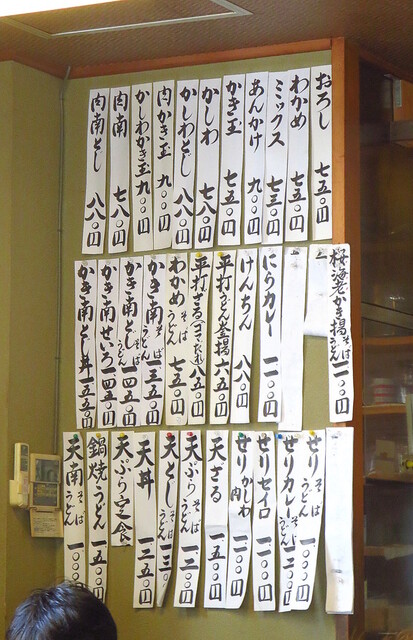 おろし 七五〇円
わかめ 七五〇円
ミックス 七三〇円
あんかけ 九〇〇円
かき玉 七五〇円
かしわ 七八〇円
かしわとじ 八八〇円
肉かき玉 九〇〇円
かしわかき玉 九〇〇円
肉南 七八〇円
肉南とじ 八八〇円
桜海老かき揚 そば うどん 一一〇〇円
にらカレー 一一〇〇円
けんちん 八八〇円
平打うどん釜揚 六五〇円
平打ざる(ごまだれ) 八五〇円
わかめ そば うどん 七五〇円
かき南 そば うどん 一三五〇円
かき南とじ そば うどん 一四五〇円
かき南せいろ 一四五〇円
かき南とじ丼 一五五〇円
せり そば うどん 一〇〇〇円
せりカレー そば うどん 一二〇〇円
せりセイロ 一一〇〇円
せりかしわ 肉 一二〇〇円
天ざる 一五〇〇円
天ぷら そば うどん 一二〇〇円
天とじ そば うどん
天丼 一二五〇円
天ぷら定食
鍋焼うどん 一五〇〇円
天南 そば うどん